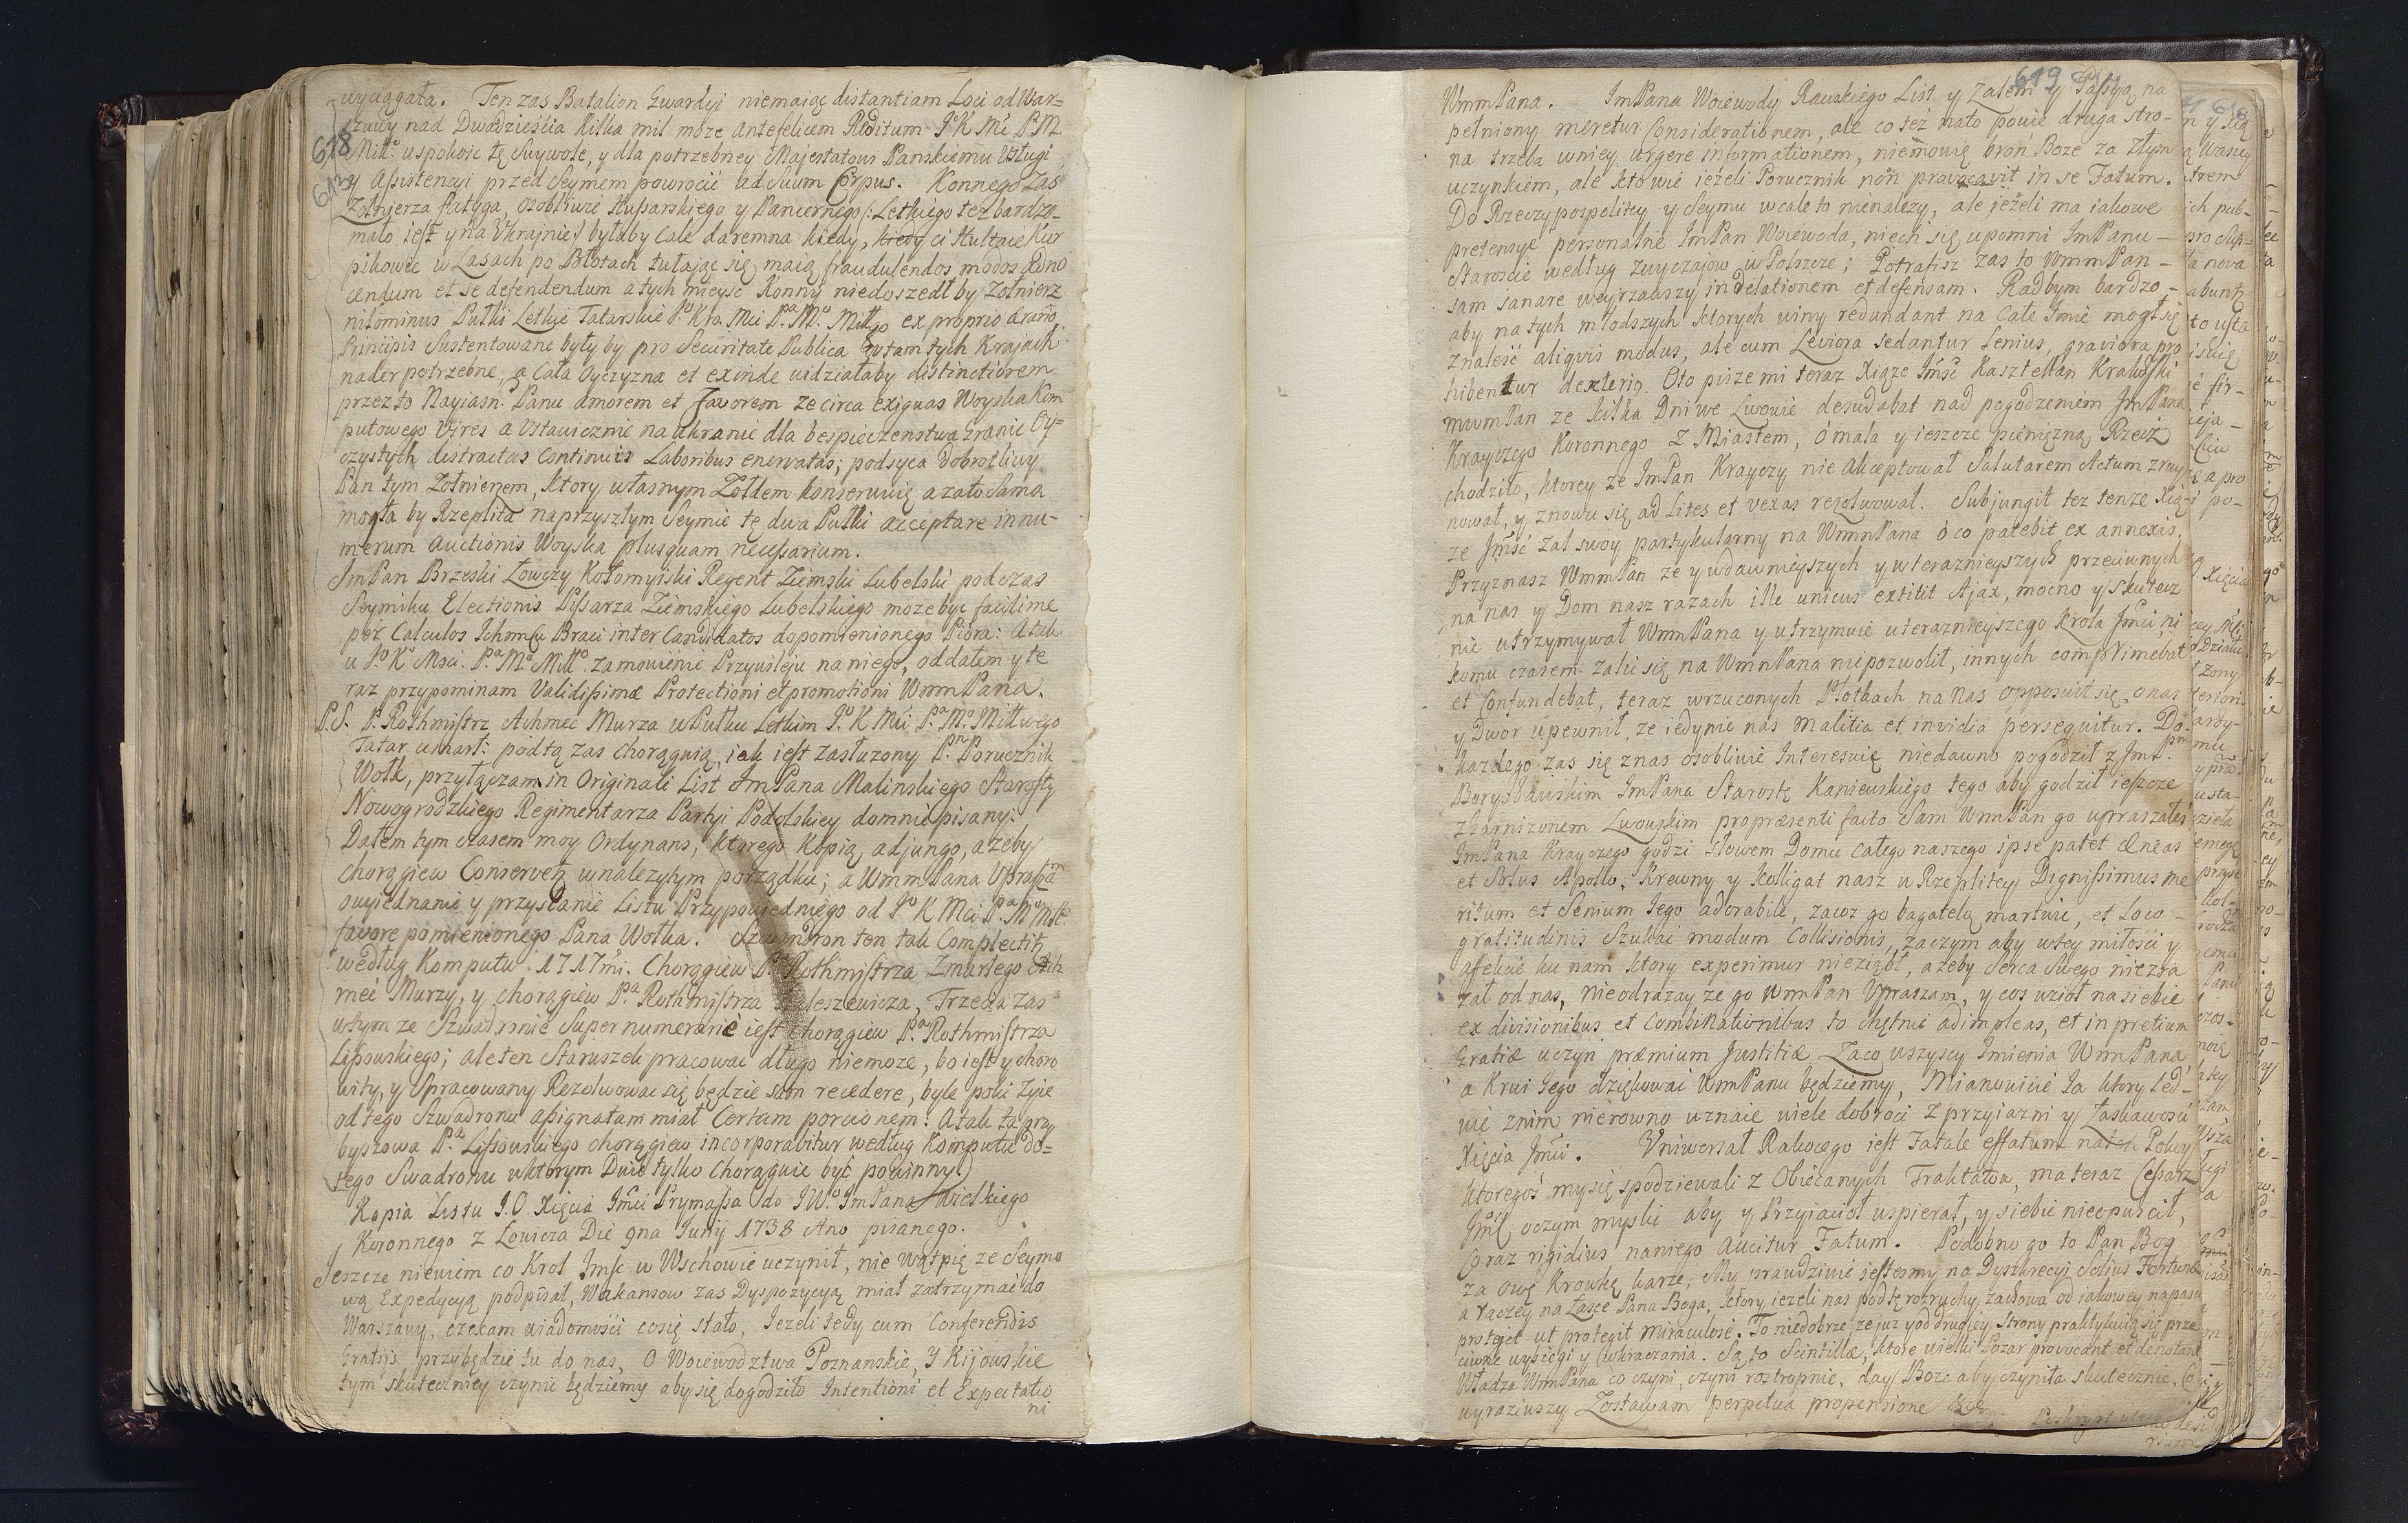 618
613
wyciągała. Ten zas Batalion Gwardyi niemaiąc distantiam Loci od War=
szawy nad Dwadzieścia kilka mil moze antefelicem Reditum J K Mci P M
Mill uspokoic tę Swywole, y dla potrzebney Majestatowi Panskiemu Usługi
y Assistencyi przed Seymem powrocić ad suum Corpus. Konnego zas
Zołnierza fatyga, osobliwie Hussarskiego y Pancernego /: Letkiego tez bardzo
mało iest y na Ukrajnie:/ byłaby cale daremna kiedy, kiedy ci Hultaie Kur
pikowie w Lasach po Błotach tułaiąc się, maią fraudulendos modos
endum et se defendendum a tych mieysc Konny niedoszedłby Zołnierz
nilominus Pułki Letkie Tatarskie J Kro Mci Pa Mo Miłgo ex proprio ærario
Principis Sustentowane byłyby pro Securitate Publica w tamtych Krajach
nader potrzebne, a Cała Oyczyzna et exinde widziałaby distinctiorem
przez to Nayiasn. Panu amorem et Favorem ze circa exiguas Woyska Kom
putowego Vires a Ustawicznie na Ukrainie dla bespieczenstwa Granic Oy=
czystych distractas Continuis Laboribus enervatas; podsyca dobrotliwy
Pan tym Zołnierzem, ktory własnym Zołdem konserwuię a zato Sama
mogła by Rzeplita na przyszłym Seymie tę dwa Pułki acceptare in nu-
merum Auctionis Woyska plusquam necessarium.
ImPan Brzeski Łowczy Kołomyiski Regent Ziemski Lubelski podczas
Seymiku Electionis Pissarza Ziemskiego Lubelskiego moze byc facilime
per Calculos Ichmciu Braci inter Candidatos dopomienionego Piora: A tak
u Jo Ko Msci. Pa Mo Miłło zamowienie Przywileju na niego, oddałem y te
raz przypominam Validissimæ Protectioni et promotioni WmmPana.
P.S. P. Rothmistrz Achmec Murza w Pułku Letkim Jo K Mci Pa Mo Miłłwego
Tatar umarł: pod tą zas chorągwią, iak iest zasłuzony Pn Porucznik
Wołk, przyłączam in Originali List ImPana Malinskiego Starosty
Nowogrodzkiego Regimentarza Partyi Podolskiey domnie pisany:
Dałem tym czasem moy Ordynans, ktorego Kopią adjungo, azeby
chorągiew Conservetr w nalezytym porządku; a WmmPana Uprasza
owyiednanie y przysłanie Listu Przypowiedniego od Jo K Mci Pa Mo Miłł.
favore pomienionego Pana Wołka. Szwandron ten tak Complectitr
według Komputu 1717mi. Chorągiew Pa Rothmistrza Zmarłego Ach
mec Murzy, y chorągiew Pa Rothmistrza Trzecia zas
w tym ze Szwadronie Supernumerarie iest chorągiew Pa Rothmistrza
Lissowskiego; ale ten Staruszek pracowac długo niemoze, bo iest y choro
wity, y Spracowany Rezolwowac się będzie sam recedere, byle poki Zyie
od tego Szwadronu assignatam miał Certam porcionem: A tak ta przy
byszowa Pa Lissowskiego chorągiew incorporabitur według Komputu do=
tego Swadronu w ktorym Dwie tylko Chorągwie być powinny.
Kopia Listu J.O. Xięcia Jmci Prymassa do JWo ImPana Wielkiego
Koronnego z Łowicza Die 9na Junij 1738 Ano pisanego.
Jeszcze niewiem co Krol Jmsc w Wschowie uczynił, nie wątpię ze Seymo
wą Expedycyą podpisał, Wakansow zas Dyspozycyą miał zatrzymać do
Warszawy, czekam wiadomości cosię stało, Jezeli tedy cum Conferendis
Gratijs przybędzie tu do nas, O Woiewodztwa Poznanskie, Y Kijowskie
tym skuteczniey czynic będziemy aby się dogodziło Intentioni et Expectatio
ni
619
WmmPana. ImPana Woiewody Rawskiego List y Zalem y Passyą na
pełniony meretur Considerationem, ale co też nato powie druga stro-
na trzeba wniey urgere informationem, niemowię broń Boze za złym
uczynkiem, ale kto wie ieżeli Porucznik non provocavit in se Fatum.
Do Rzeczypospolitey y Seymu wcale to nienalezy, ale jeżeli ma iakowe
pretensye personalne ImPan Woiewoda, niech się upomni ImPanu
Staroscie według zwyczajow w Polszcze; Potrafisz zas to WmmPan -
sam sanare weyrzawszy in delationem et defensam. Radbym bardzo -
aby na tych młodszych ktorych winy redundant na Całe Imie mogł się
znaleść aliqvis modus, ale cum Leviora sedantur lenius, graviora pro
hibentur dexteriq. Oto pisze mi teraz Xiąze Jmść Kasztellan Krakowski
mwmPan ze kilka Dni we Lwowie desudabat nad pogodzeniem JmPana
Krayczego Koronnego z Miastem, o mała y ieszcze pieniężną Rzecz
chodziło, ktorey ze ImPan Krayczy nie Akceptował Salutarem Actum zruy
nował, y znowu się ad Lites et vexas rezolwował. Subjungit tez tenze Xią
ze Jmść zal swoy partykularny na WmmPana o co patebit ex annexis.
Przyznasz WmmPan ze y wdawnieyszych y w teraznieyszych przeciwnych
na nas y Dom nasz razach ille unicus extitit Ajax, mocno y skutecz
nie utrzymywał WmmPana y utrzymuie u teraznieyszego Krola Jmci, ni
komu czasem zalić się na WmmPana niepozwolił, innych comprimebat
et Confundebat, teraz wrzuconych Plotkach na nas opposuił się, o nas
y Dwor upewnił, ze iedynie nas malitia et invidia persequitur. Do
kazdego zas się znas osobliwie Interesuię niedawno pogodził z Jmć Pm
Borysławskim ImPana Starostę Kaniewskiego tego aby godził ieszcze
z Garnizonem Lwowskim pro præsenti facto Sam WmmPan go upraszałeś
ImPana Krayczego godzi słowem Domu całego naszego ipse patet Æneas
et Solus Apollo, Krewny y Kolligat nasz w Rzeplitey Dignissimus me
ritum et Senium Jego adorabile, zacoz go bagatelą martwić, et Loco -
gratitudinis Szukać modum Collisionis, zaczym aby w tey miłości y
afekcie ku nam ktory experimur nieziąbł, azeby Serca Swego niezra
zał od nas, nieodrazay ze go WmmPan Upraszam, y cos wziął na siebie
ex divisionibus et Combinationibus to chętnie adimpleas, et in pretium
Gratiæ uczyn præmium Justitiæ Zaco wszyscy Imienia WmmPana
a Krwi Jego dziękować WmmPanu będziemy, Mianowicie Ja ktory Led=
wie znim nierowno uznaię wiele dobroci z przyiazni y Łaskawości
Xięcia Jmci. Uniwersał Rakocego iest Fatale effatum naten Pokoy
ktoregoś mysię spodziewali z Obiecanych Traktatow, ma teraz Cesarz
Jmść oczym myslić aby y Przyiacioł uspierał, y siebie nieopuscił,
Coraz rigidius naniego aucitur Fatum. Podobno go to Pan Bog
za owę Krowkę karze, My prawdziwie jestesmy na Dyskrecyi Solius Fortunæ
a raczey na Łasce Pana Boga, ktory iezeli nas pod tę rozruchy zachowa od iakowey napasci
proteget ut protegit miraculose. To niedobrze ze juz y od drugiey Strony praktykuią się prze
ciwne wyscigi y wkraczania. Są to Scintillæ, ktore wielki Pozar provocant et denotant
Władza WmmPana co czyni, czyni roztropnie, day Boze aby czyniła skutecznie.
wyraziwszy Zostawam perpetua propensione